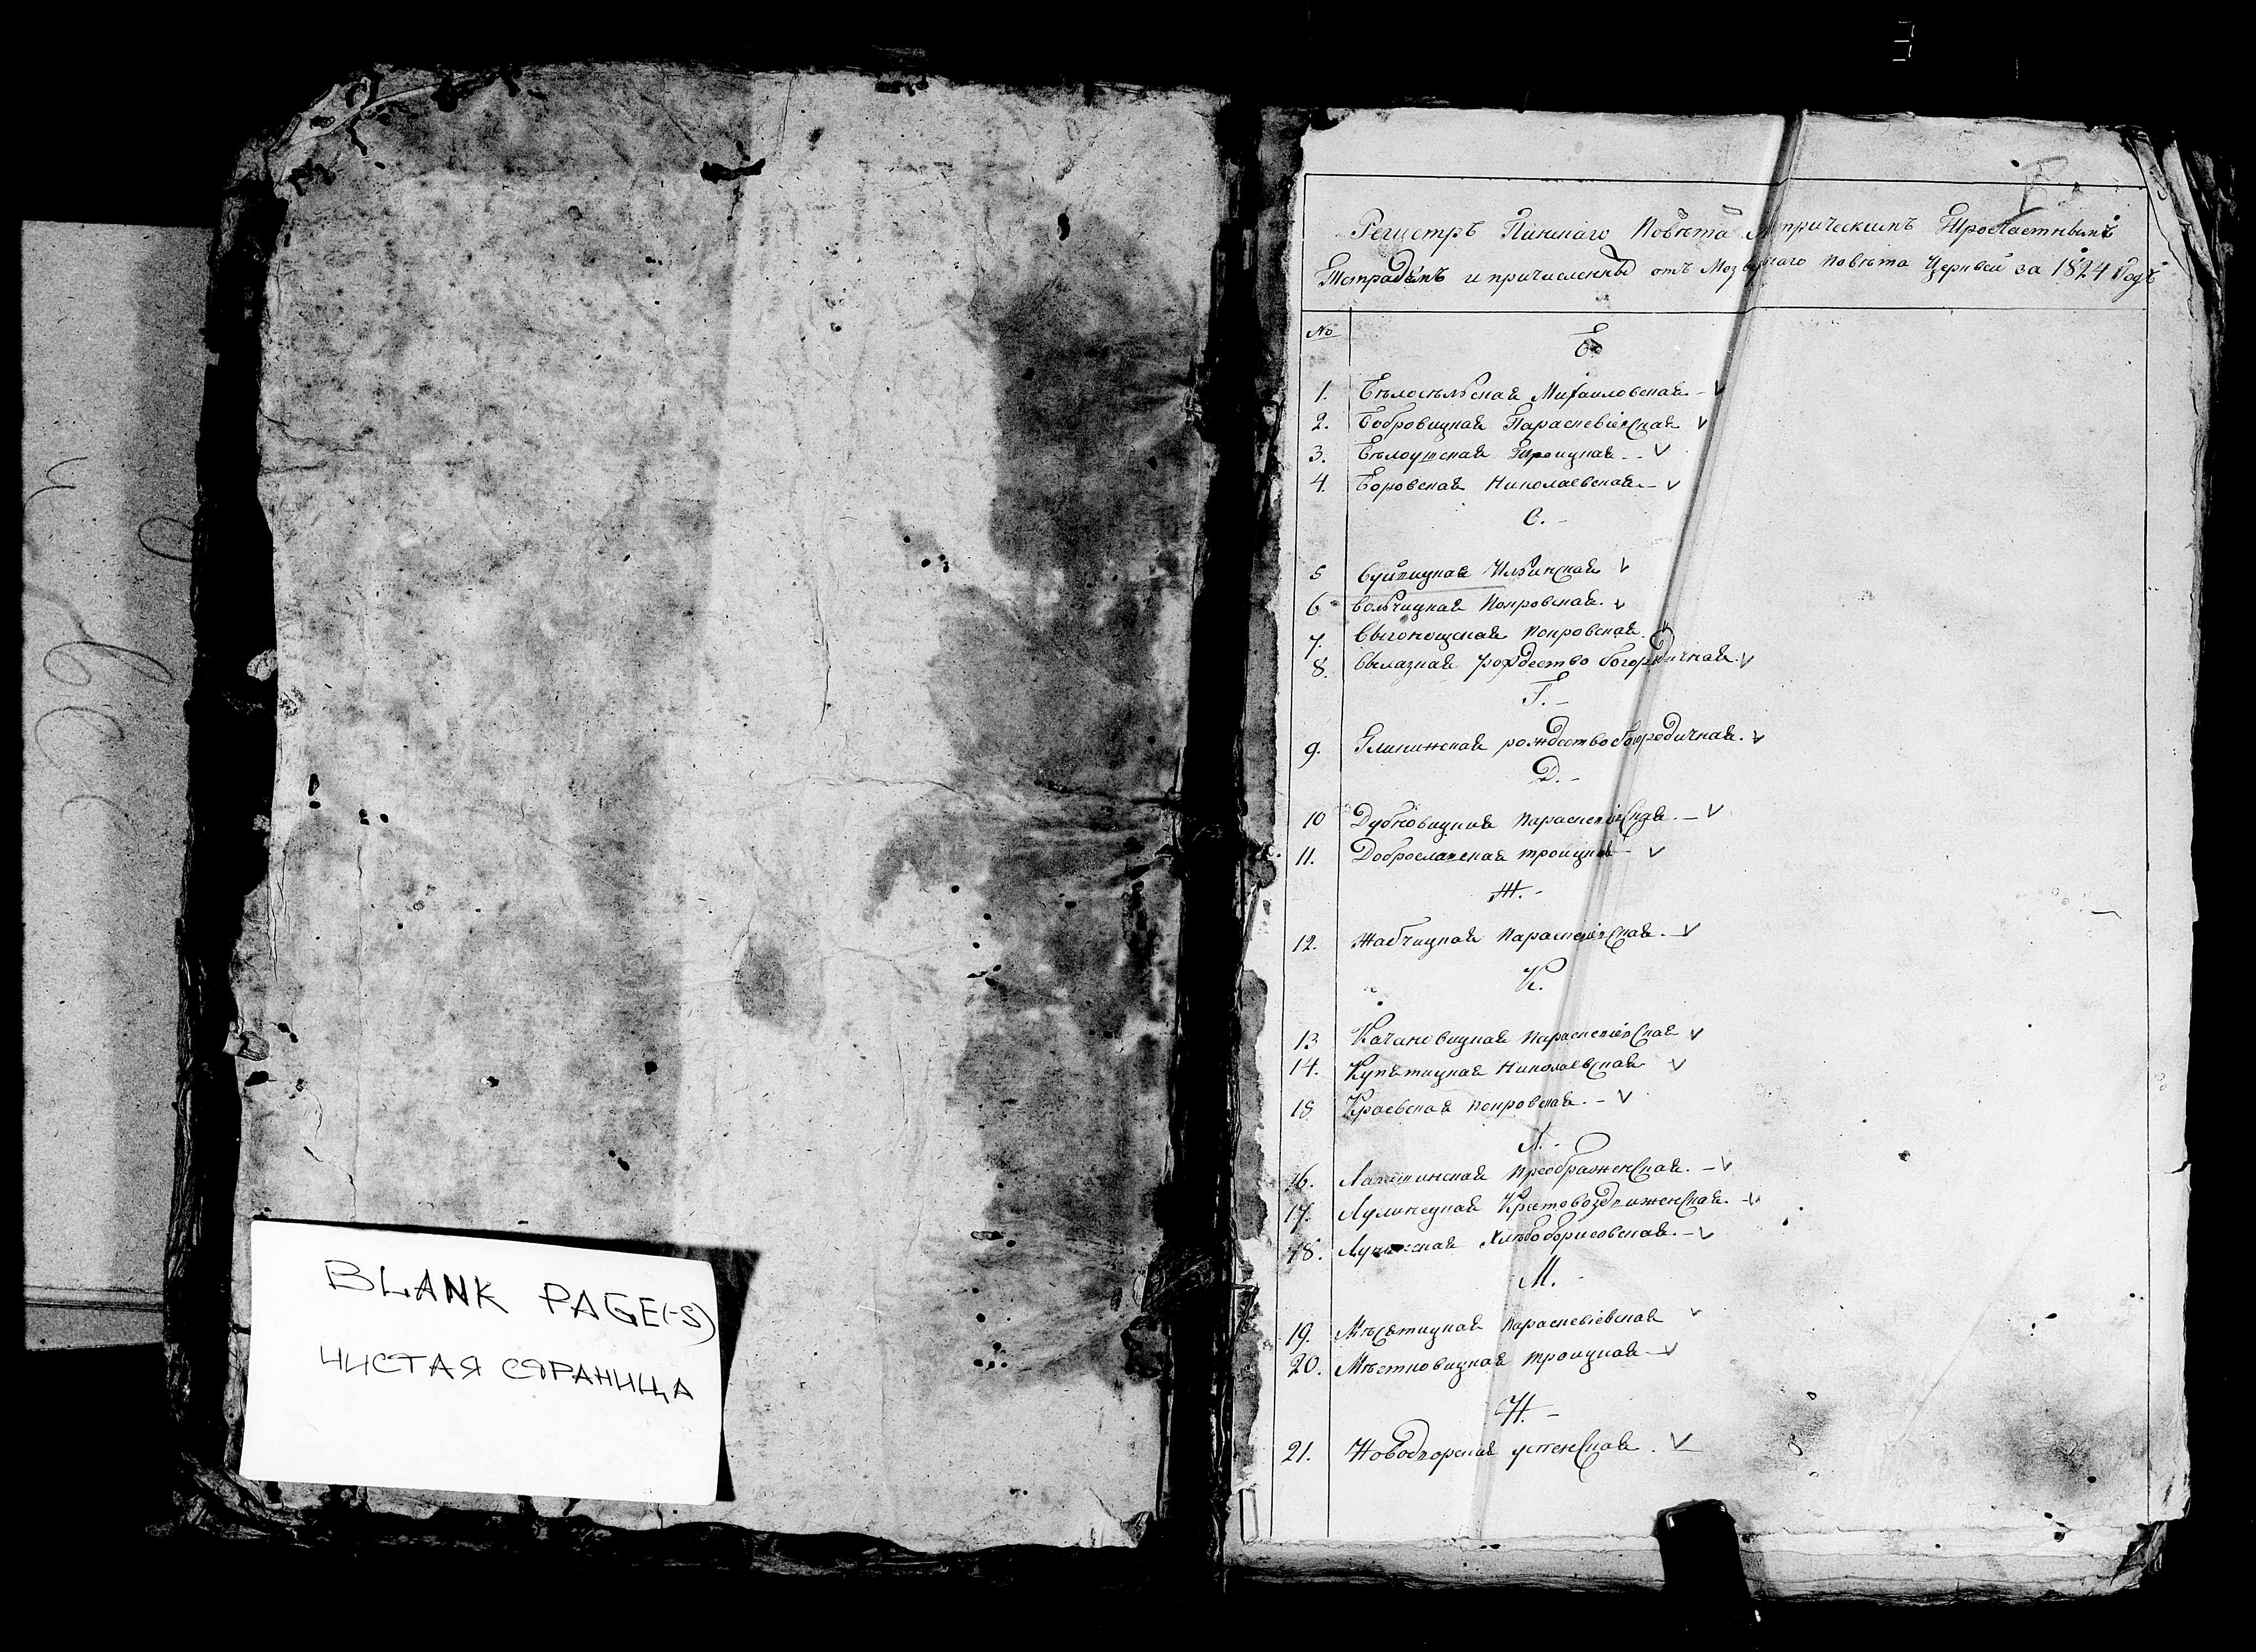 BLANK PAGE(-S)
ЧИСТАЯ СТРАНИЦА
Регистръ Пинскаго Повѣта Метрическимъ Троечастнымъ
Тетрадямъ и причисленныхъ отъ Мозырскаго повѣта Церквей за 1824 Годъ
№
Б.
1. Бѣлосельская Михаиловская - v
2. Бобровицкая Параскевіевская v
3. Бѣлоушская Троицкая - v
4. Боровская Николаевская - v
В. -
5 Вуйвицкая Ильинская v
6 Вольчицкая Покровская. v
7. Выгонощская Покровская.
8. Вылазкая Рождество Богородичная. v
Г. -
9. Глинянская рождествобогородичная. v
Д. -
10 Дубновицкая Параскевіевская. - v
11. Доброславская троицкая - v
Ж. -
12. Жабчицкая Параскевіевская. - v
К.
13 Качановицкая Параскевіевская v
14. Купятицкая Николаевская v
15 Краевская покровская. - v
Л. -
16. Лопатинская Преображенская. - v
17. Лулинецкая Крестовоздвиженская. - v
18. Лунинская Хлѣбоборисовская. - v
М. -
19. Мѣсятицкая Параскевіевская v
20. Мѣстковицкая троицкая - v
Н. -
21. Новодворская успенская. v